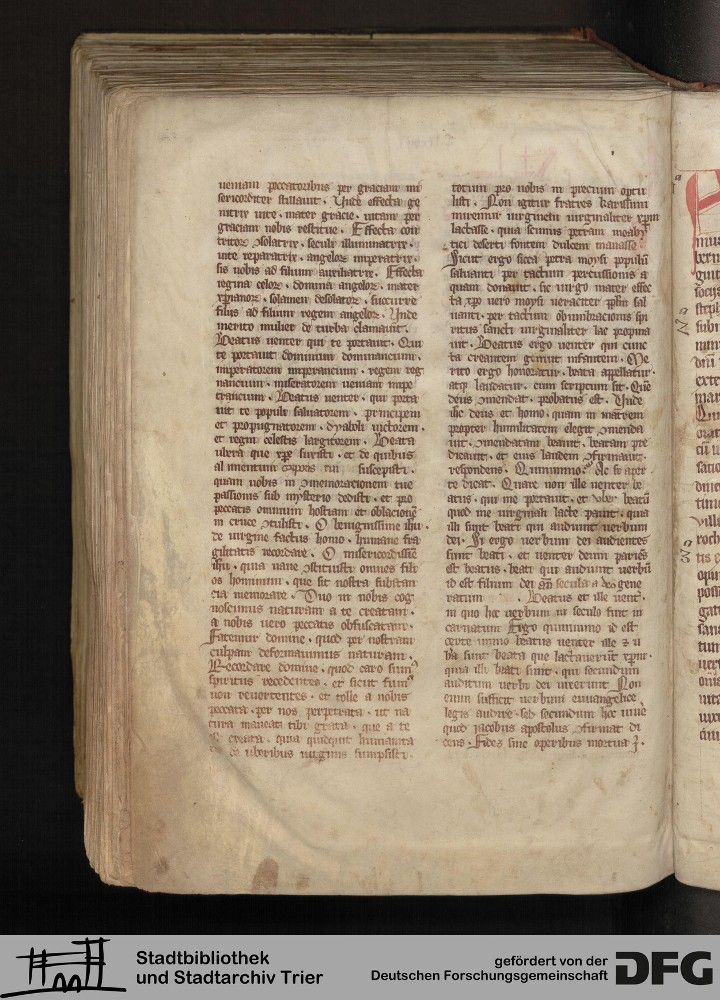 ueniam peccatoribus per graciam mi
sericorditer stillauit. Unde effecta ge
nitrix uite. mater gracie. uitam per
graciam nobis restitue. Effecta con
seculi illuminatrix.
uite reparatrix. angelorum imperatrix.
sis nobis ad filium auxiliatrix. Effecta
regina celorum. domina angelorum. mater
xpianorum. solamen desolatorum. succurre
ad filium regem angelorum. Unde
merito mulier de turba clamauit.
Beatus uenter qui te portauit. Qui
te portauit dominum dominancium.
imperatorem imperancium. regem reg
nancium. miseratorem ueniam impe
trancium. Beatus uenter. qui porta
uit te populi saluatorem. principem
et propugnatorem. dyaboli uictorem.
et regni celestis largitorem. Beata
ubera que xpe suxisti. et de quibus
alimentum corporis tui suscepisti.
quam nobis in 9memoracionem tue
passionis sub mysterio dedisti. et pro
peccatis omnium hostiam et oblacionē
in cruce 9tulisti. O benignissime ihu.
de uirgine factus homo. humane fra
gilitatis recordare. O misericordissime
ihu. quia uane 9stituisti omnes fili
os hominum. que sit nostra substan
cia memorare. Duo in nobis cog
noscimus naturam a te creatam.
a nobis uero peccatis obfuscatam.
Fatemur domine. quod per nostram
culpam deformauimus naturam.
Recordare domine. quod caro sumus
spiritus recedentes. et sicut
non reuertentes. et tolle a nobis
peccata. per nos perpetrata. ut na
tura maneat tibi grata. que a te
creata. quia quicquit humanita
de uberibus uirginis sumpsisti.
totum pro nobis in precium optu
listi. Non igitur fratres karissimi
miremur uirginem uirginaliter xpm
lactasse. quia scimus petram moaby
tici deserti fontem dulcem manasse.
Sicut ergo sicca petra moysi populum
saluanti per tactum percussionis a
quam donauit. sic uirgo mater effec
ta xpo uero moysi ueraciter pplm sal
uanti. per tactum obumbracionis spi
ritus sancti uirginaliter lac propina
uit. Beatus ergo uenter qui cunc
ta creantem genuit infantem. Me
rito ergo honoratur. beata appellatur.
atque laudatur. cum scriptum sit. Quē
deus 9mendat. probatus est. Unde
ihc deus et homo. quam in matrem
propter humilitatem elegit 9menda
uit. 9mendatam beauit. beatam pre
dicauit. et eius laudem 9firmauit.
respondens. Quinimmo. Ac si aper
te dicat. Quare non ille uenter be
atus. qui me portauit. et uber beatū
quod me uirginali lacte pauit. quia
illi sunt beati qui audiunt uerbum
dei. Si ergo uerbum dei audientes
sunt beati. et uenter deum pariēs
est beatus. beati qui audiunt uerbū
id est filium dei ante secula a deo gene
ratum. Beatus et ille uent.
in quo hoc uerbum in seculo fuit in
carnatum. Ergo quinimmo id est
certe immo beatus uenter ille & u
ba sunt beata que lactauerūt xpm.
quia illi beati sunt. qui secundum
auditum uerbi dei uixerint. Non
enim sufficit uerbum euuangelice
legis audire. sed secundum hoc uiue
quod jacobus apostolus 9firmat di
cens. Fides sine operibus mortua ē.
Stadtbibliothek
und Stadtarchiv Trier
gefördert von der
Deutschen Forschungsgemeinschaft
DFG